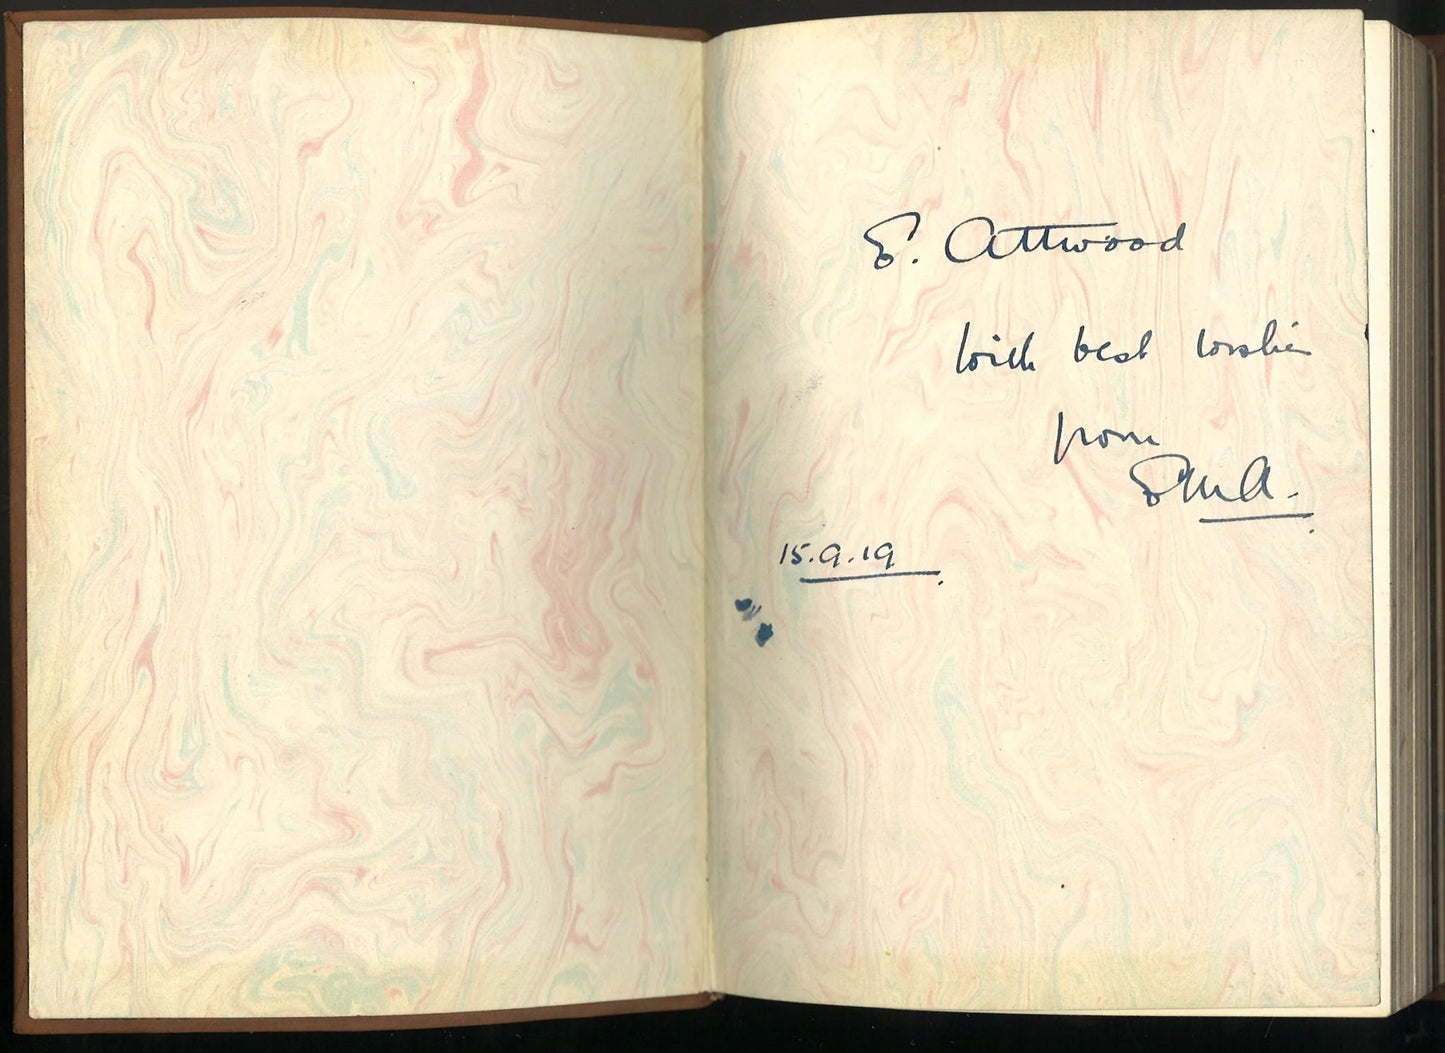 E. Attwood
with best wishes
from
EMA.
15.9.19